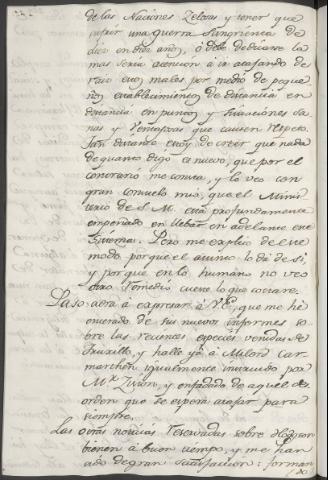 de las Naciones Zelosas y tener que
sufrir una guerra sangrienta de
diez en diez años, ò debe dedicarse la
mas seria atencion à ir atajando de
raiz esos males por medio de peque
ños establecimientos de distancia en
distancia en puntos y situaciones sa
nas y ventajosas que causen respeto.
Tan distante estoy de creer que nada
de quanto digo es nuevo, que por el
contrario me consta, y lo veo con
gran consuelo mio, que el Minis
terio de S. M. está profundamente
empeñado en llebar en adelante ese
sistema. Pero me explico de ese
modo porque el asunto lo dà de si,
y porque en lo humano no veo
otro remedio
Paso aora à expresar à V.E. que me hé
enterado de sus nuevos informes so
bre las recientes especies venidas de
Truxillo, y hallè yà à Milord Car
marthen igualmente instruido por
y enfadado de aquel des
orden que se espera atajar para
siempre.
Las otras noticias reservadas sobre
bienen à buen tiempo, y me han
sido de gran satisfaccion: forman